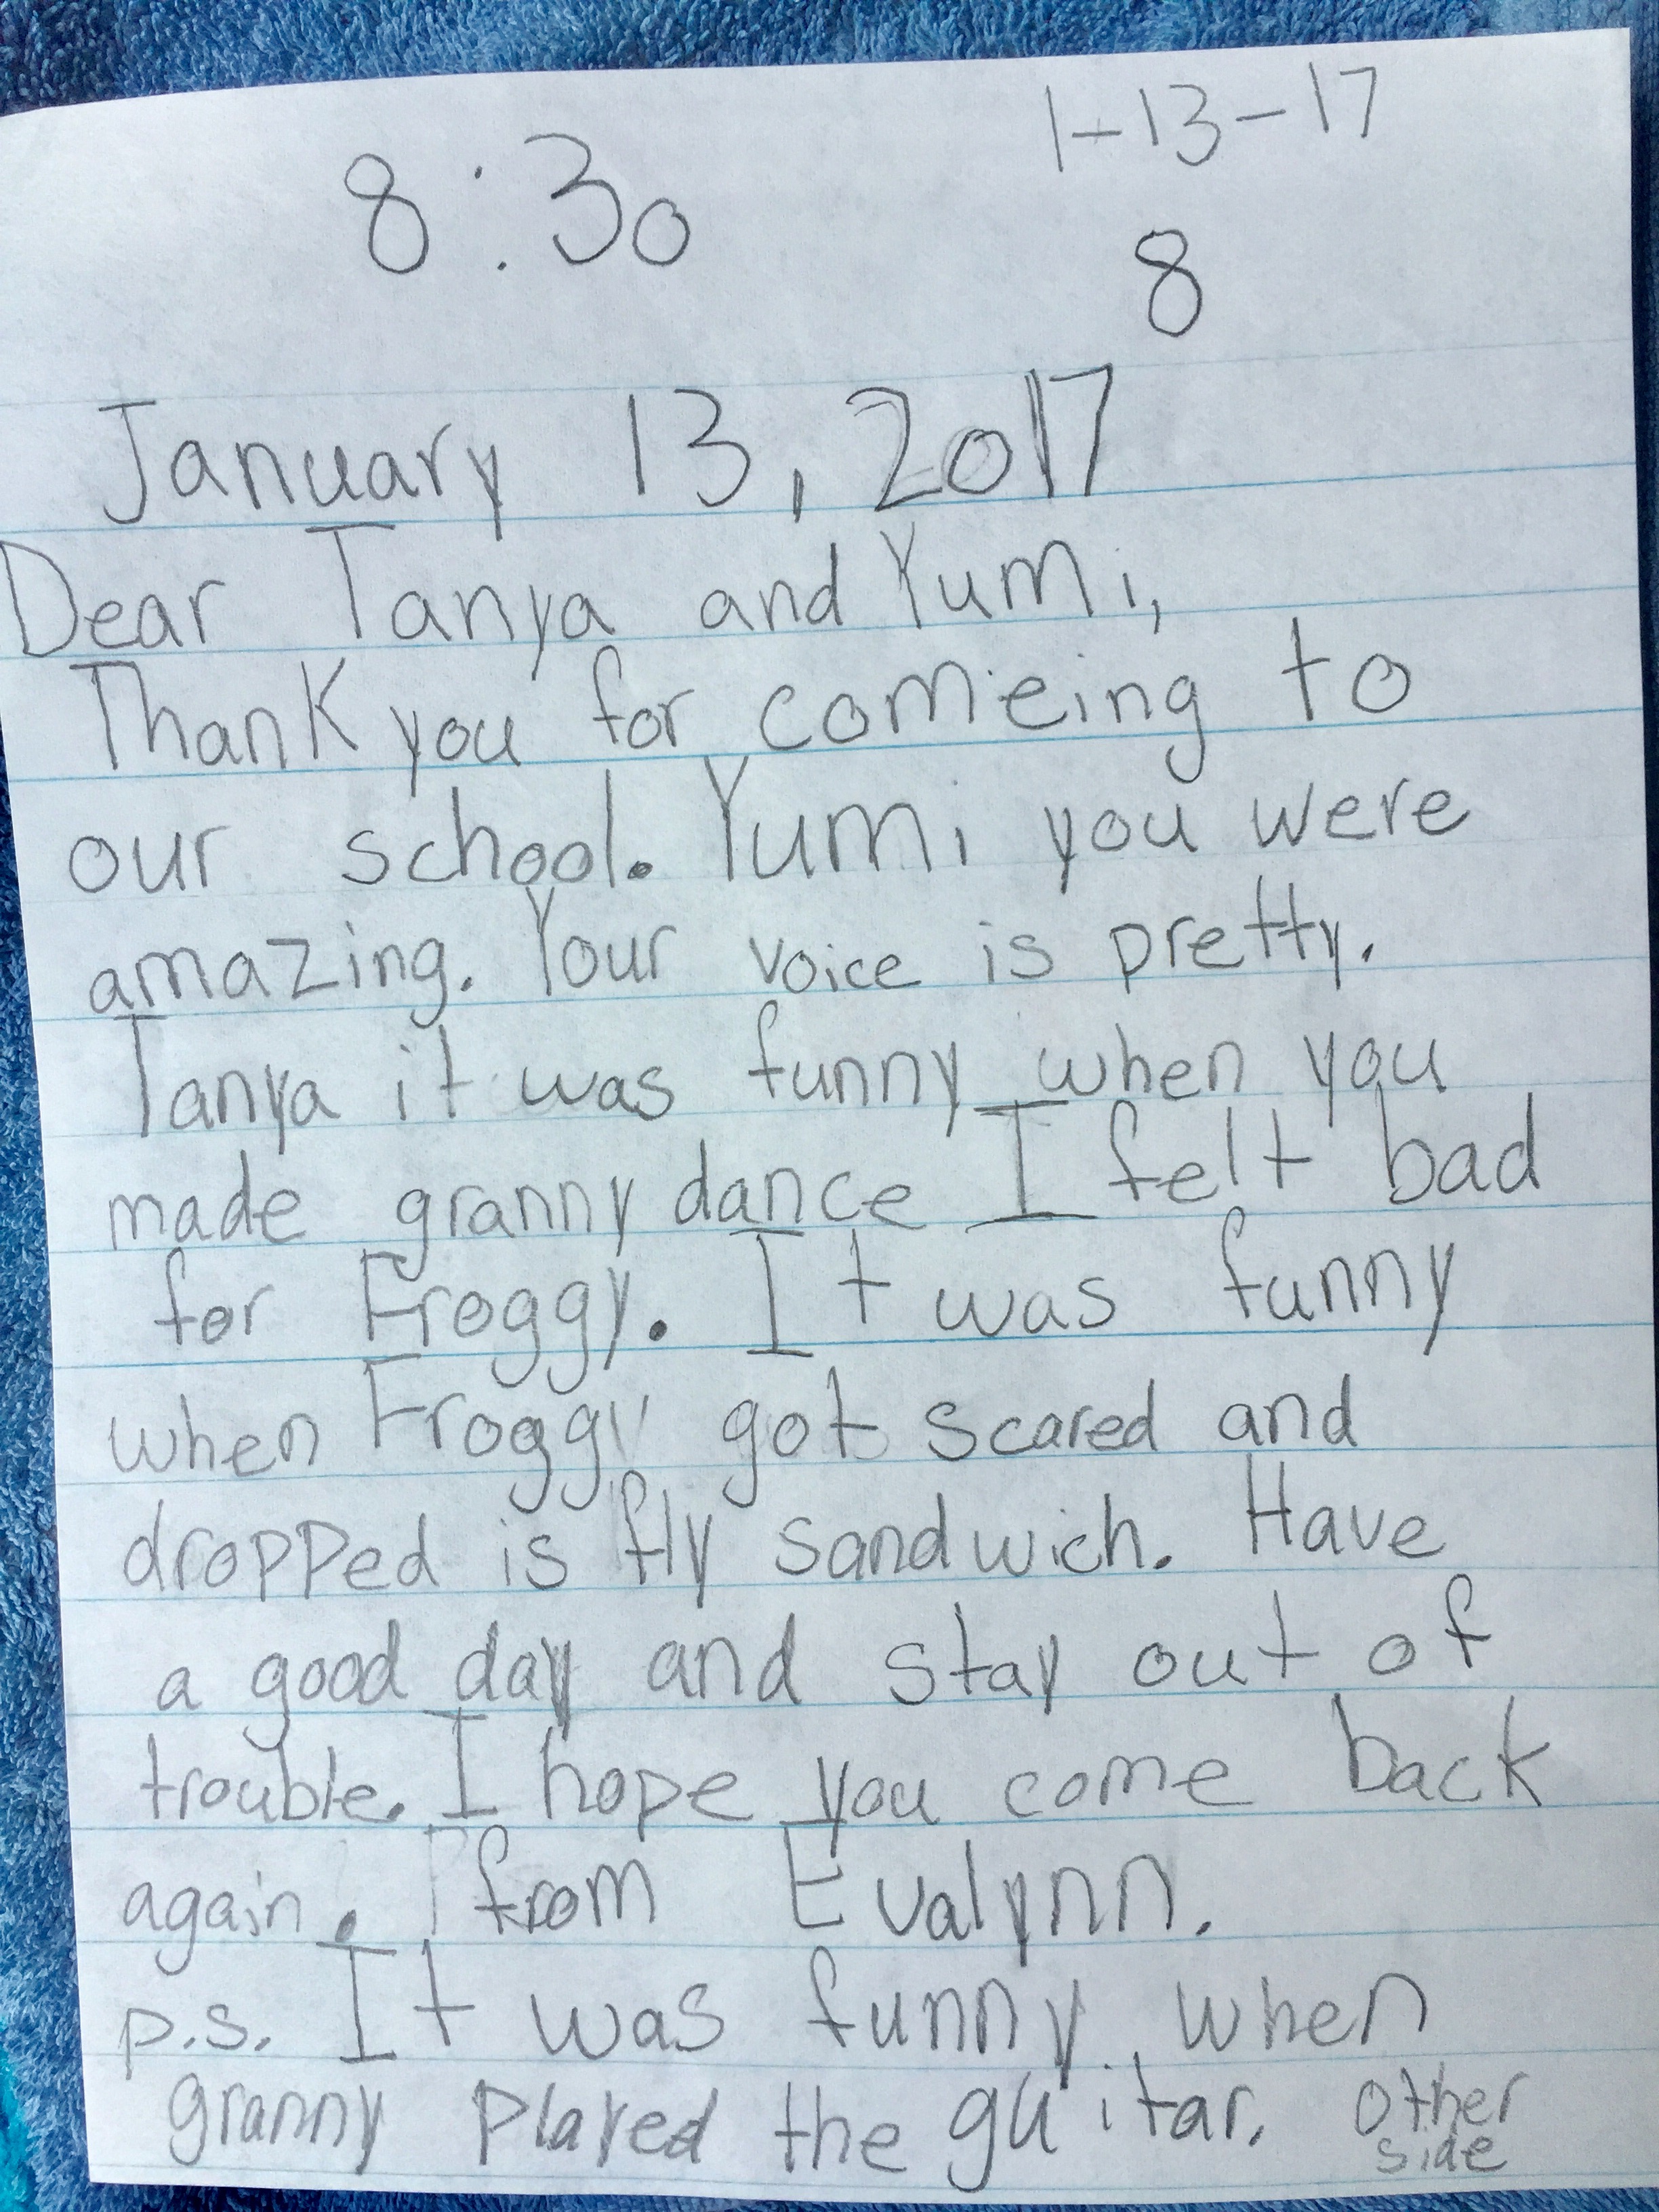 1-13-17
8:30
8
January 13, 2017
Dear Tanya and Yumi,
Thank you for comeing to
our school. Yumi you were
amazing. Your voice is pretty.
Tanya it was funny when you
made granny dance I felt bad
for Froggy. It was funny
when Froggy got scared and
dropped is fly sandwich. Have
a good day and stay out of
trouble. I hope you come back
again. from Evalynn.
p.s. It was funny when
granny played the guitar. other
side